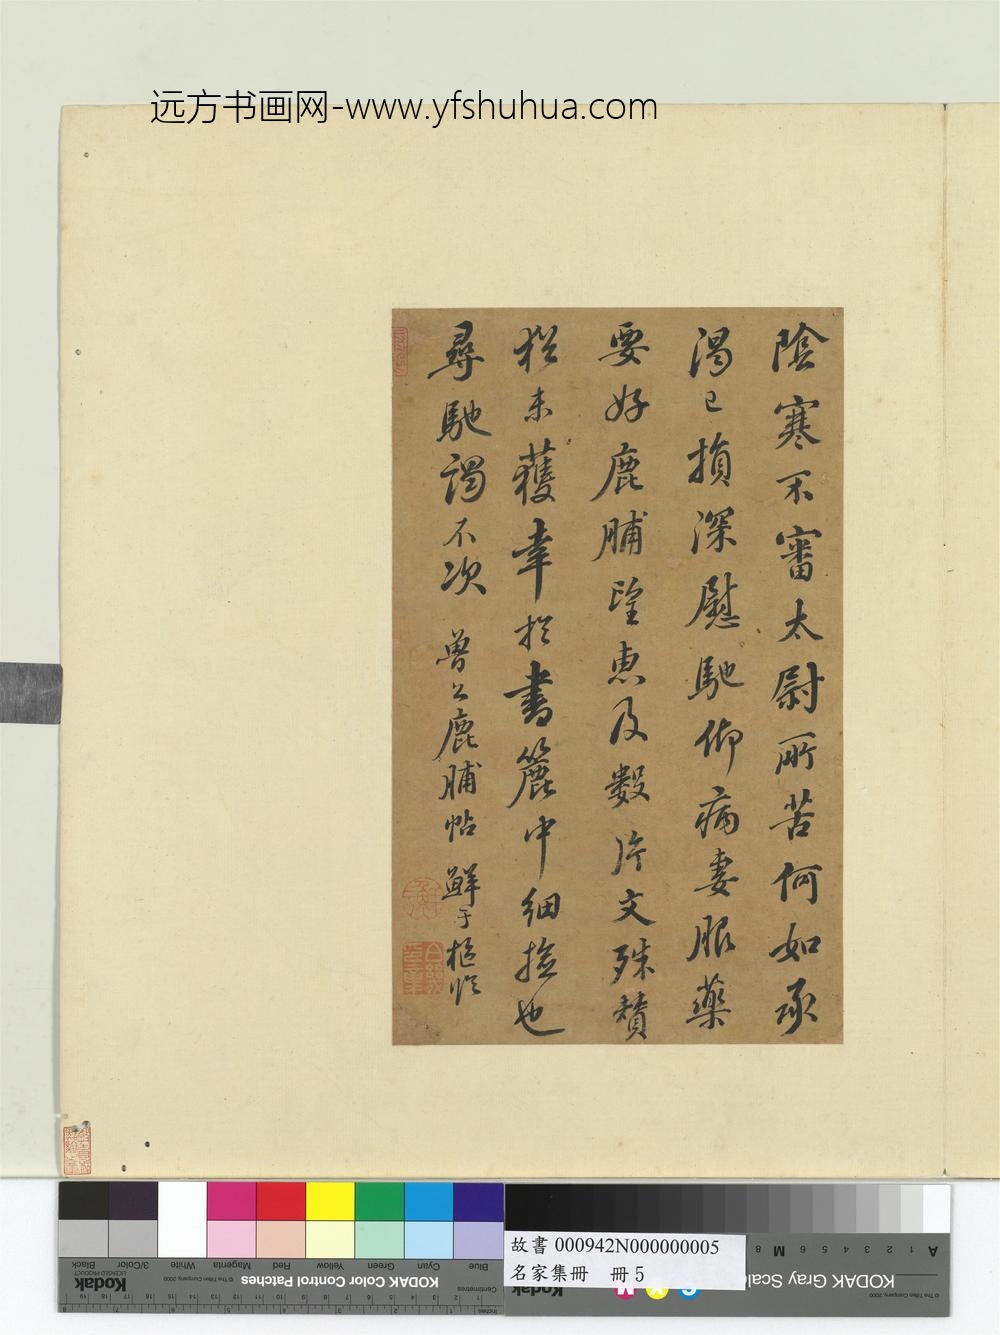 远方书画网-www.yfshuhua.com
陰寒不審太尉所苦何如承
渴已損深慰馳仰病妻服藥
要好鹿脯望惠及數片文殊贊
猶未獲幸於書簏中細撿也
尋馳謁不次 魯公鹿脯帖 鮮于樞臨
故書 000942N000000005
名家集冊 冊 5
KODAK Color Control Patches
Kodak
LICENSED PRODUCT
© The Tiffen Company, 2000
Blue Cyan Green Yellow Red Magenta White 3/Color Black
Centimetres
Inches
KODAK Gray Scale
© The Tiffen Company, 2000
A 1 2 3 4 5 6 M 8